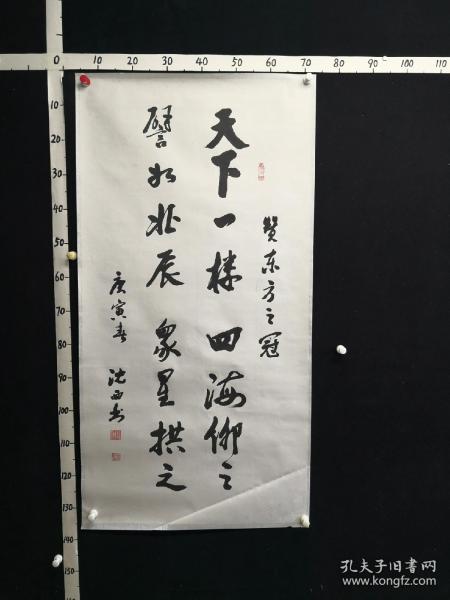 赞东方之冠
天下一楼 四海仰之
譬如北辰 众星拱之
庚寅春 沈西书
10 0 10 20 30 40 50 60 70 80 90 100 110
10
20
30
40
50
60
70
80
90
100
110
120
130
140
150
孔夫子旧书网
www.kongfz.com